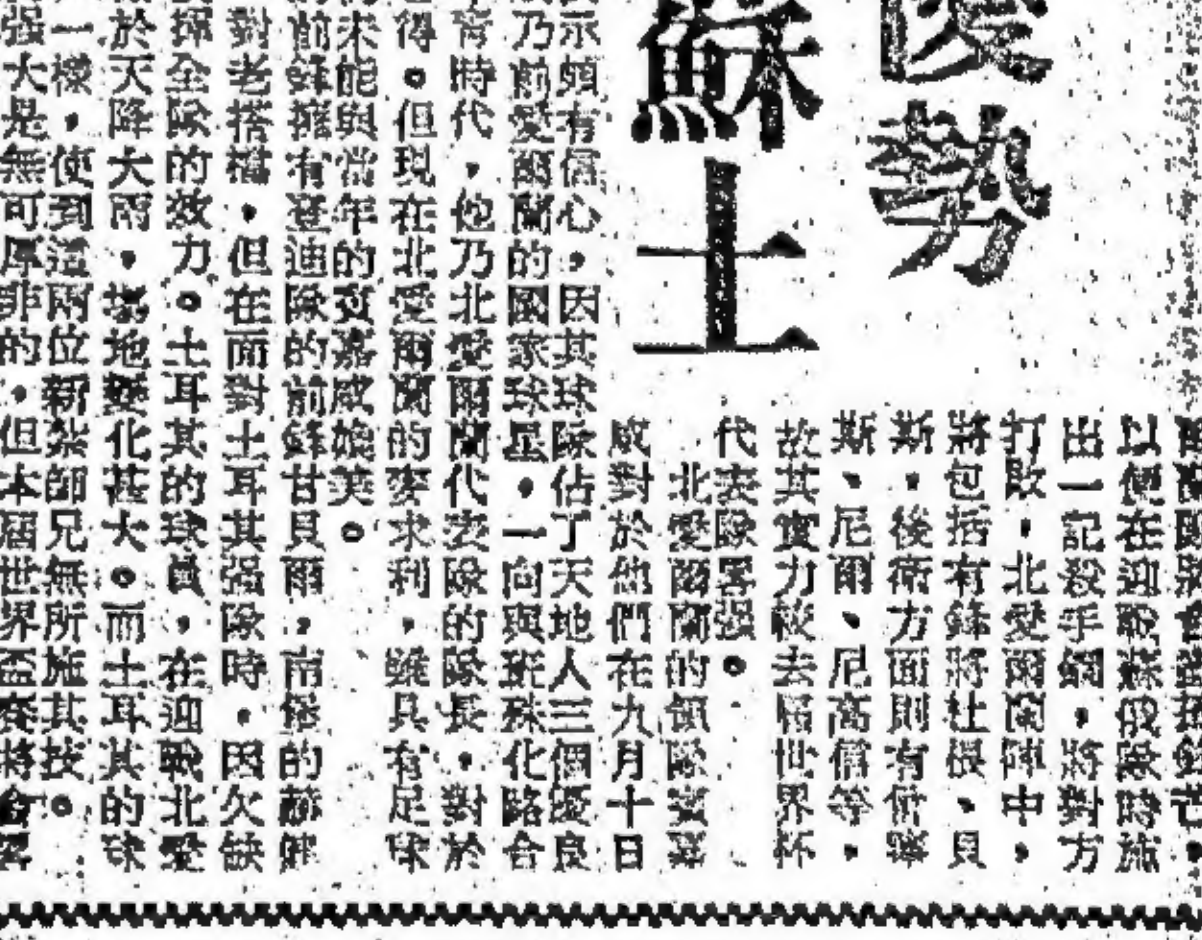 優勢
蘇士
以便在迎戰蘇俄隊時施
出一記殺手鐧，將對方
打敗，北愛爾蘭陣中，
將包括有鋒將杜根、貝
斯，後衛方面則有
斯、尼爾、尼高信等，
故其實力較去屆世界杯
代表隊署强。
北愛爾蘭的領隊賓嘉
咸對於他們在九月十日
示頗有信心，因其球隊佔了天地人三個優良
乃前愛爾蘭的國家球星，一向與班殊化路合
時代，他乃北愛爾蘭代表隊的隊長，對於
得。但現在北愛爾蘭的麥求利，雖具有足球
未能與當年的賓嘉咸媲美。
前鋒擁有登迪隊的前鋒甘貝爾，南堡的
對老搭檔，但在面對土耳其强隊時，因欠缺
揮全隊的效力。土耳其的球員，在迎戰北愛
於天降大雨，場地變化甚大。而土耳其的球
一樣，使到這兩位新紮師兄無所施其技。
强大是無可厚非的，但本屆世界盃賽將會